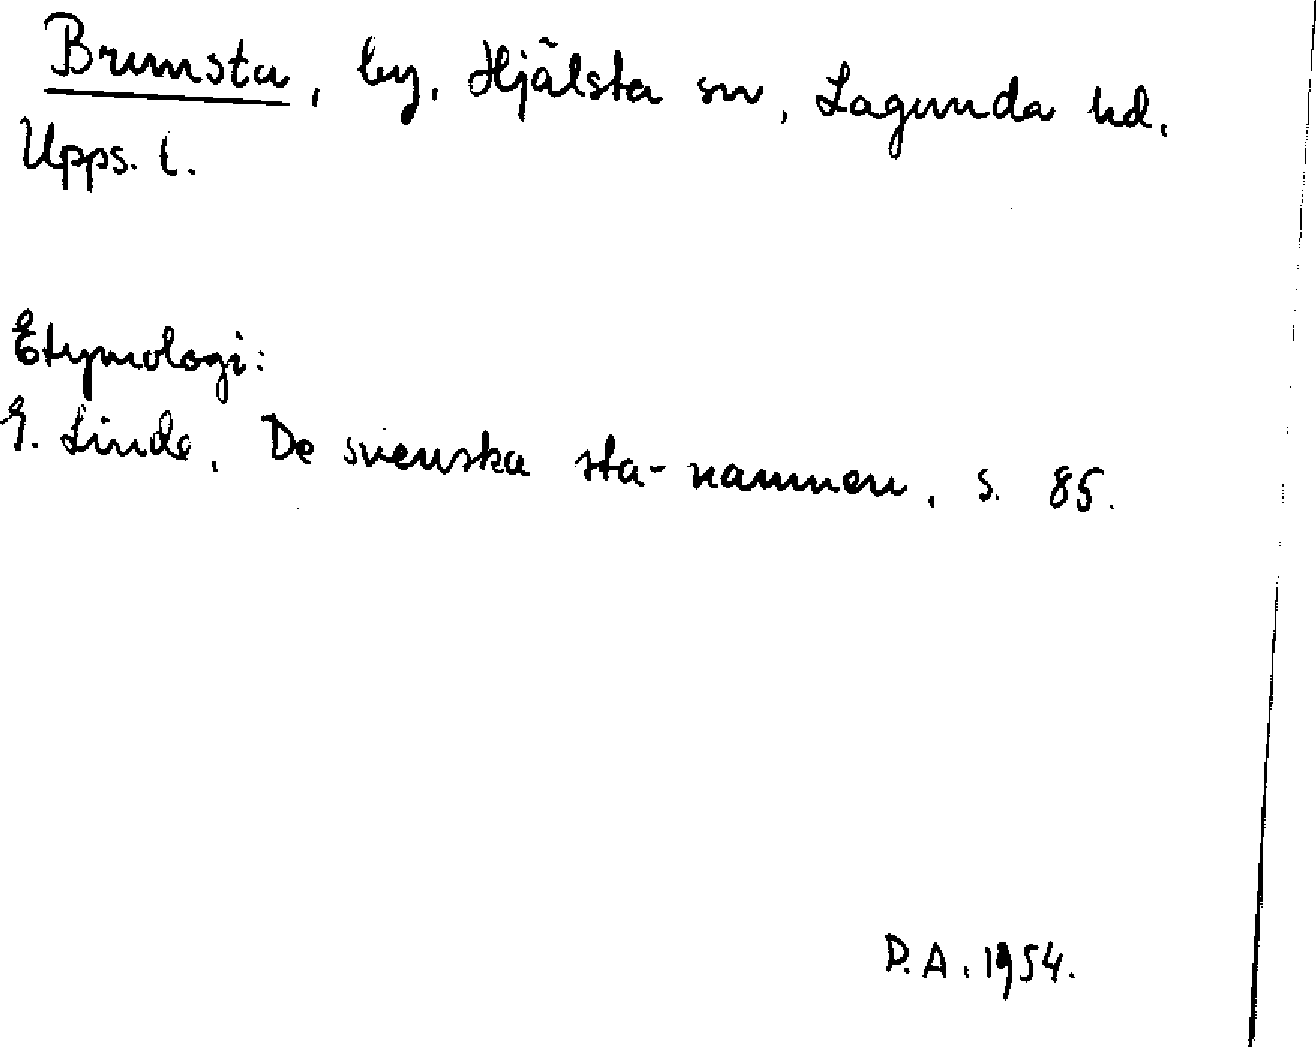 Brumsta, by, Hjälsta sn, Lagunda hd.
Upps. l.
Etymologi:
G. Linde, De svenska sta-namnen, s. 85.
D.A. 1954.